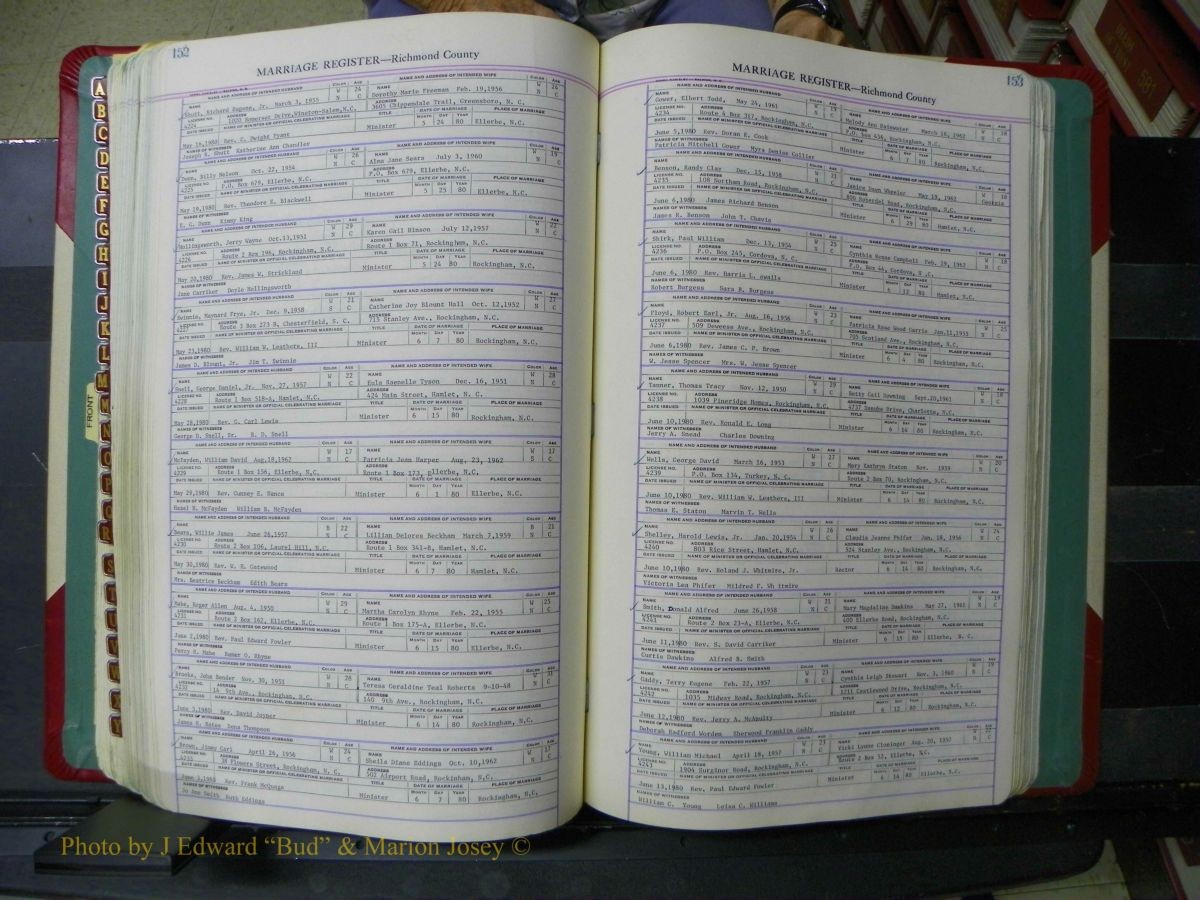 152
MARRIAGE REGISTER—Richmond County
NAME AND ADDRESS OF INTENDED HUSBAND COLOR AGE NAME AND ADDRESS OF INTENDED WIFE COLOR AGE
Shutt, Richard Eugene, Jr. March 3, 1955 W 24 Dorothy Marie Freeman Feb. 19,1956 W 24
4224 1020 Somerset Drive,Winston-Salem,N.C. N C 3605 Chippendale Trail, Greensboro, N. C. N C
DATE ISSUED NAME OF MINISTER OR OFFICIAL CELEBRATING MARRIAGE TITLE DATE OF MARRIAGE PLACE OF MARRIAGE
May 16,1980 Rev. C. Dwight Tyant Minister 5 24 80 Ellerbe, N.C.
NAMES OF WITNESSES
Joseph R. Shutt Katherine Ann Chandler
Dunn, Billy Nelson Oct. 22, 1954 W 26 Alma Jane Sears July 3, 1960 W 19
4225 P.O. Box 629, Ellerbe, N.C. N C P.O. Box 629, Ellerbe, N.C. N C
May 19,1980 Rev. Theodore E. Blackwell Minister 5 25 80 Ellerbe, N.C.
E. G. Dunn Kinny King
Hollingsworth, Jerry Wayne Oct.13,1951 W 29 Karen Gail Hinson July 12,1957 W 22
4226 Route 2 Box 196, Rockingham, N.C. N C Route 1 Box 71, Rockingham, N.C. N C
May 20,1980 Rev. James W. Strickland Minister 5 24 80 Rockingham, N.C.
Jane Carriker Doyle Hollingsworth
Swinnie, Maynard Frye, Jr. Dec. 9,1958 W 21 Catherine Joy Blount Hall Oct. 12,1952 W 27
4227 Route 3 Box 273 B, Chesterfield, S. C. S C 713 Stanley Ave., Rockingham, N.C. N C
May 23,1980 Rev. William W. Leathers, III Minister 6 7 80 Rockingham, N.C.
James D. Blount, Jr. Jim T. Swinnie
Snell, George Daniel, Jr. Nov. 27, 1957 W 22 Eula Raenelle Tyson Dec. 16, 1951 W 28
4228 Route 1 Box 518-A, Hamlet, N.C. N C 424 Main Street, Hamlet, N. C. N C
May 28,1980 Rev. G. Carl Lewis Minister 6 15 80 Rockingham, N.C.
George D. Snell, Sr. B. D. Snell
McFayden, William David Aug.18,1962 W 17 Patricia Jean Harper Aug. 23, 1962 W 17
4229 Route 1 Box 156, Ellerbe, N.C. N C Route 1 Box 173, Ellerbe, N.C. S C
May 29,1980 Rev. Cumney E. Nance Minister 6 1 80 Ellerbe, N.C.
Hazel N. McFayden William B. McFayden
Bears, Willie James June 26,1957 B 22 Lillian Delores Beckham March 7,1959 B 21
4230 Route 2 Box 106, Laurel Hill, N.C. N C Route 1 Box 341-B, Hamlet, N.C. N C
May 30,1980 Rev. W. R. Gatewood Minister 6 7 80 Hamlet, N.C.
Mrs. Beatrice Beckham Edith Bears
Mabe, Roger Allen Aug. 4, 1950 W 29 Martha Carolyn Rhyne Feb. 22, 1955 W 25
4231 Route 2 Box 162, Ellerbe, N.C. N C Route 1 Box 175-A, Ellerbe, N.C. N C
June 2,1980 Rev. Paul Edward Fowler Minister 6 15 80 Ellerbe, N.C.
Percy H. Mabe Homer O. Rhyne
Brooks, John Bender Nov. 30, 1951 W 28 Teresa Geraldine Teal Roberts 9-10-48 W 31
4232 14 9th Ave., Rockingham, N.C. N C 140 9th Ave., Rockingham, N.C. N C
June 3,1980 Rev. David Joyner Minister 6 14 80 Rockingham, N.C.
James H. Bates Dena Thompson
Brown, Jimmy Carl April 24, 1956 W 24 Sheila Diane Eddings Oct. 10,1962 W 17
4233 38 Flowers Street, Rockingham, N. C. N C 502 Airport Road, Rockinham, N.C. N C
June 3,1980 Rev. Frank McQuage Minister 6 7 80 Rockingham, N.C.
Jo Ann Smith Ruth Eddings
153
MARRIAGE REGISTER—Richmond County
Gower, Elbert Todd, May 24, 1961 W 19 Melody Ann Hatswater March 16, 1962 W 18
4234 Route 4 Box 317, Rockingham, N.C. N C P.O. Box 456, Rockingham, N.C.
June 5,1980 Rev. Doran E. Cook Minister 6 7 80 Rockingham, N.C.
Patricia Mitchell Gower Myra Denise Collier
Benson, Randy Clay Dec. 15, 1958 W 21 Janice Dawn Wheeler May 19, 1962 W 18
4235 108 Northam Road, Rockingham, N.C. N C 800 Roberdel Road, Rockingham, N.C. Georgia
June 6,1980 James Richard Benson Minister 6 29 80 Hamlet, N.C.
James R. Benson John T. Chavis
Shirk, Paul William Dec. 13, 1954 W 25 Cynthia Renae Campbell Feb. 19, 1962 W 18
4236 P.O. Box 245, Cordova, N. C. N C P.O. Box 46, Cordova, N .C. N C
June 6, 1980 Rev. Harris L. owalls Minister 6 12 80 Hamlet, N.C.
Robert Burgess Sara B. Burgess
Floyd, Robert Earl, Jr. Aug. 16, 1956 W 23 Patricia Rose Wood Garris Jan.11,1955 W 25
4237 509 Deweese Ave., Rockingham, N.C. N C 705 Scotland Ave., Rockingham, N.C. N C
June 6,1980 Rev. James C. P. Brown Minister 6 4 80 Rockingham, N.C.
W. Jesse Spencer Mrs. W. Jesse Spencer
Tanner, Thomas Tracy Nov. 12, 1950 W 29 Betty Gail Downing Sept.20,1961 W 18
4238 1039 Pineridge Homes, Rockingham, N.C. N C 4737 Danube Drive, Charlotte, N.C. N C
June 10,1980 Rev. Ronald E. Long Minister 6 14 80 Rockingham, N.C.
Jerry A. Snead Charles Downing
Wells, George David March 16, 1953 W 27 Mary Kathryn Staton Nov. 1959 W 20
4239 P.O. Box 134, Turkey, N. C. N C Route 2 Box 70, Rockingham, N.C. N C
June 10,1980 Rev. William W. Leathers, III Minister 6 14 80 Rockingham, N.C.
Thomas E. Staton Marvin T. Wells
Shelley, Harold Lewis, Jr. Jan. 20,1954 W 26 Claudia Jeanne Phifer Jan. 18, 1956 W 24
4240 803 Rice Street, Hamlet, N.C. N C 524 Stanley Ave., Rockingham, N.C. N C
June 10,1980 Rev. Roland J. Whitmire, Jr. Rector 6 14 80 Rockingham, N.C.
Victoria Lea Phifer Mildred F. Wh itmire
Smith, Donald Alfred June 26,1958 W 21 Mary Magdaline Dawkins May 27, 1961 W 19
4241 Route 2 Box 23-A, Ellerbe, N.C. N C 400 Ellerbe Road, Rockingham, N.C. N C
June 11,1980 Rev. S. David Carriker Minister 6 15 80 Ellerbe, N. C.
Curtis Dawkins Alfred B. Smith
Gaddy, Terry Eugene Feb. 22, 1957 W 23 Cynthia Leigh Stewart Nov. 3, 1960 W 19
4242 1035 Midway Road, Rockingham, N.C. N C 1211 Castlewood Drive, Rockingham, N.C. N C
June 12,1980 Rev. Jerry A. McAnulty Minister 6 12 80 Rockingham, N.C.
Deborah Radford Worden Sherwood Franklin Gaddy
Young, William Michael April 18, 1957 W 23 Vicki Lynne Cloninger Aug. 20, 1957 W 22
4243 1904 Surginor Road, Rockingham, N.C. N C Route 2 Box 52, Ellerbe, N.C. N C
June 13,1980 Rev. Paul Edward Fowler Minister 6 14 80 Ellerbe, N.C.
William C. Young Leisa C. Williams
FRONT
A
B
C
D
E
F
G
H
I
J
K
L
M
Photo by J Edward “Bud” & Marion Josey ©